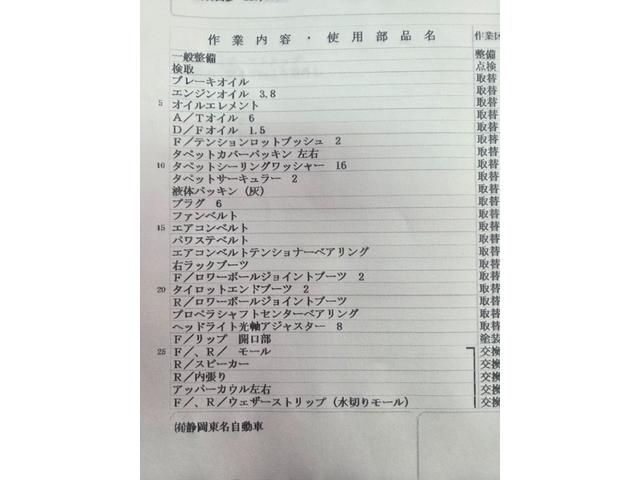 作業内容・使用部品名 作業区
一般整備 整備
検取 点検
ブレーキオイル 取替
エンジンオイル 3.8 取替
5 オイルエレメント 取替
A／Tオイル 6 取替
D／Fオイル 1.5 取替
F／テンションロットブッシュ 2 取替
タペットカバーパッキン 左右 取替
10 タペットシーリングワッシャー 16 取替
タペットサーキュラー 2 取替
液体パッキン（灰） 取替
プラグ 6 取替
ファンベルト 取替
15 エアコンベルト 取替
パワステベルト 取替
エアコンベルトテンショナーベアリング 取替
右ラックブーツ 取替
F／ロワーボールジョイントブーツ 2 取替
20 タイロットエンドブーツ 2 取替
R／ロワーボールジョイントブーツ 取替
プロペラシャフトセンターベアリング 取替
ヘッドライト光軸アジャスター 8 取替
F／リップ 開口部 塗装
25 F／、R／ モール 交換
R／スピーカー 交換
R／内張り 交換
アッパーカウル左右 交換
F／、R／ウェザーストリップ（水切りモール） 交換
㈲静岡東名自動車